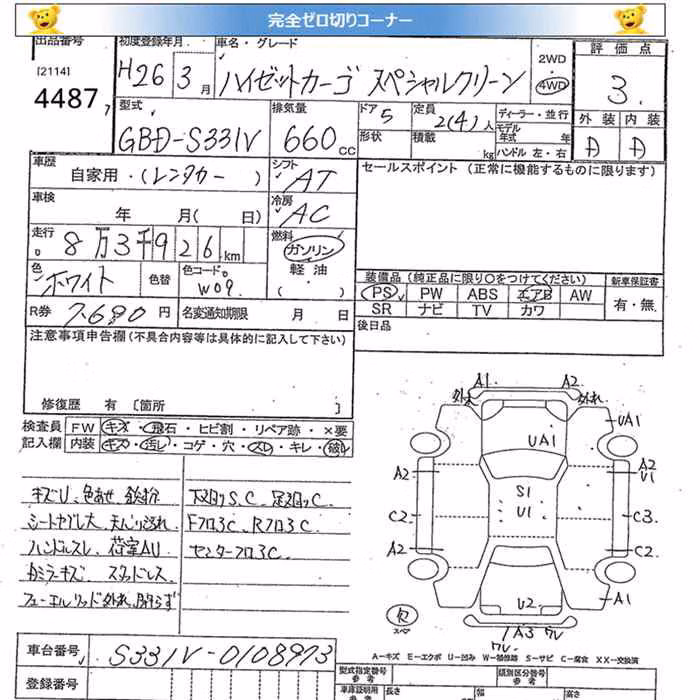 完全ゼロ切りコーナー
出品番号 初度登録年月 車名・グレード 評価点
[2114] 4487 H26年3月 ハイゼットカーゴ スペシャルクリーン 2WD 4WD 3
型式 排気量 ドア 5 定員 2(4)人 ディーラー・並行 外装 内装
GBD-S331V 660cc 形状 積載 kg モデル年式 年 ハンドル 左・右
車歴 シフト セールスポイント (正常に機能するものに限ります)
自家用・(レンタカー) AT
車検 年 月( 日) 冷房 AC
走行 8万3千926km 燃料 ガソリン
軽油
色 ホワイト 色替 色コード W09 ( )
装備品 (純正品に限り○をつけてください) 新車保証書
PS PW ABS エアB AW 有・無
SR ナビ TV カワ
R券 7,690円 名変通知期限 月 日 後日品
注意事項申告欄(不具合内容等は具体的に記入して下さい)
修復歴 有 [箇所 ]
検査員 FW キズ・飛石・ヒビ割・リペア跡・×要
記入欄 内装 キズ・汚レ・コゲ・穴・スレ・キレ・破レ
キズU、色あせ、鉄粉 下廻りS、C、足廻りC
シートヤブレ大 天内汚れ Fフロ3C、Rフロ3C
ハンドルスレ、荷室AU センターフロ3C
カミラーキズ スタッドレス
フューエルリッド外れ
外れ A1 A2 外れ
UA1 UA1
A2 S1 A2
U1 U1
C2 C3
A2 C2
U2 A1
欠 スペア A3
A-キズ E-エクボ U-凹み W-補修跡 S-サビ C-腐食 XX-交換済
車台番号 S331V-0108973 型式指定番号 参考 類別区分番号 参考
登録番号 車庫証明用 参考 長さ 幅 高さ